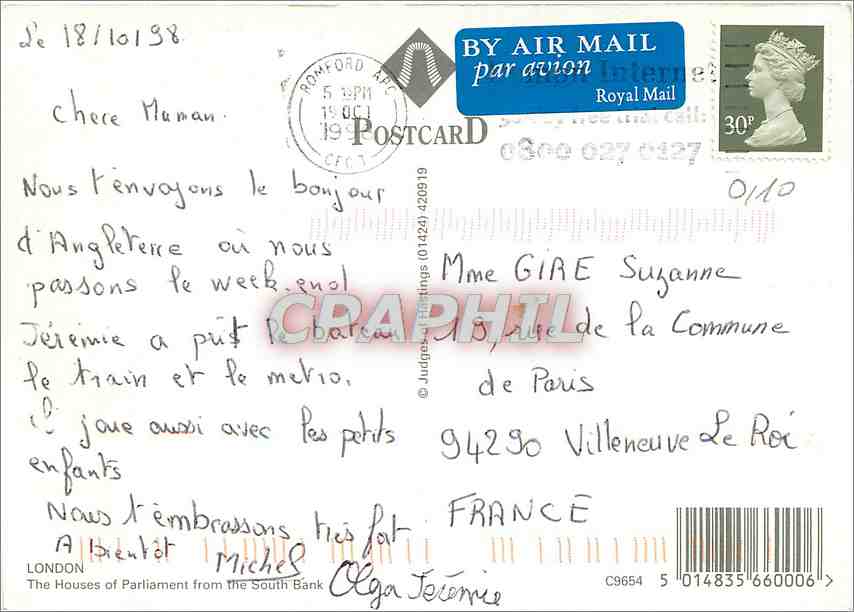 Le 18/10/98
Chere Maman.
Nous t'envoyons le bonjour
d'Angleterre où nous
passons le week.end
Jérémie a prit le bateau,
le train et le metro.
il joue aussi avec les petits
enfants
Nous t'embrassons très fort
A Bientot
Michel
Olga Jérémie
LONDON
The Houses of Parliament from the South Bank
ROMFORD APC
5 PM
19 OCT
199
POSTCARD
© Judges of Hastings (01424) 420919
CPAPHIL
BY AIR MAIL
par avion
Royal Mail
Internet
free trial call:
0800 027 0127
30P
0,10
Mme GIRE Suzanne
19, rue de la Commune
de Paris
94290 Villeneuve Le Roi
FRANCE
C9654
5 014835 660006 >